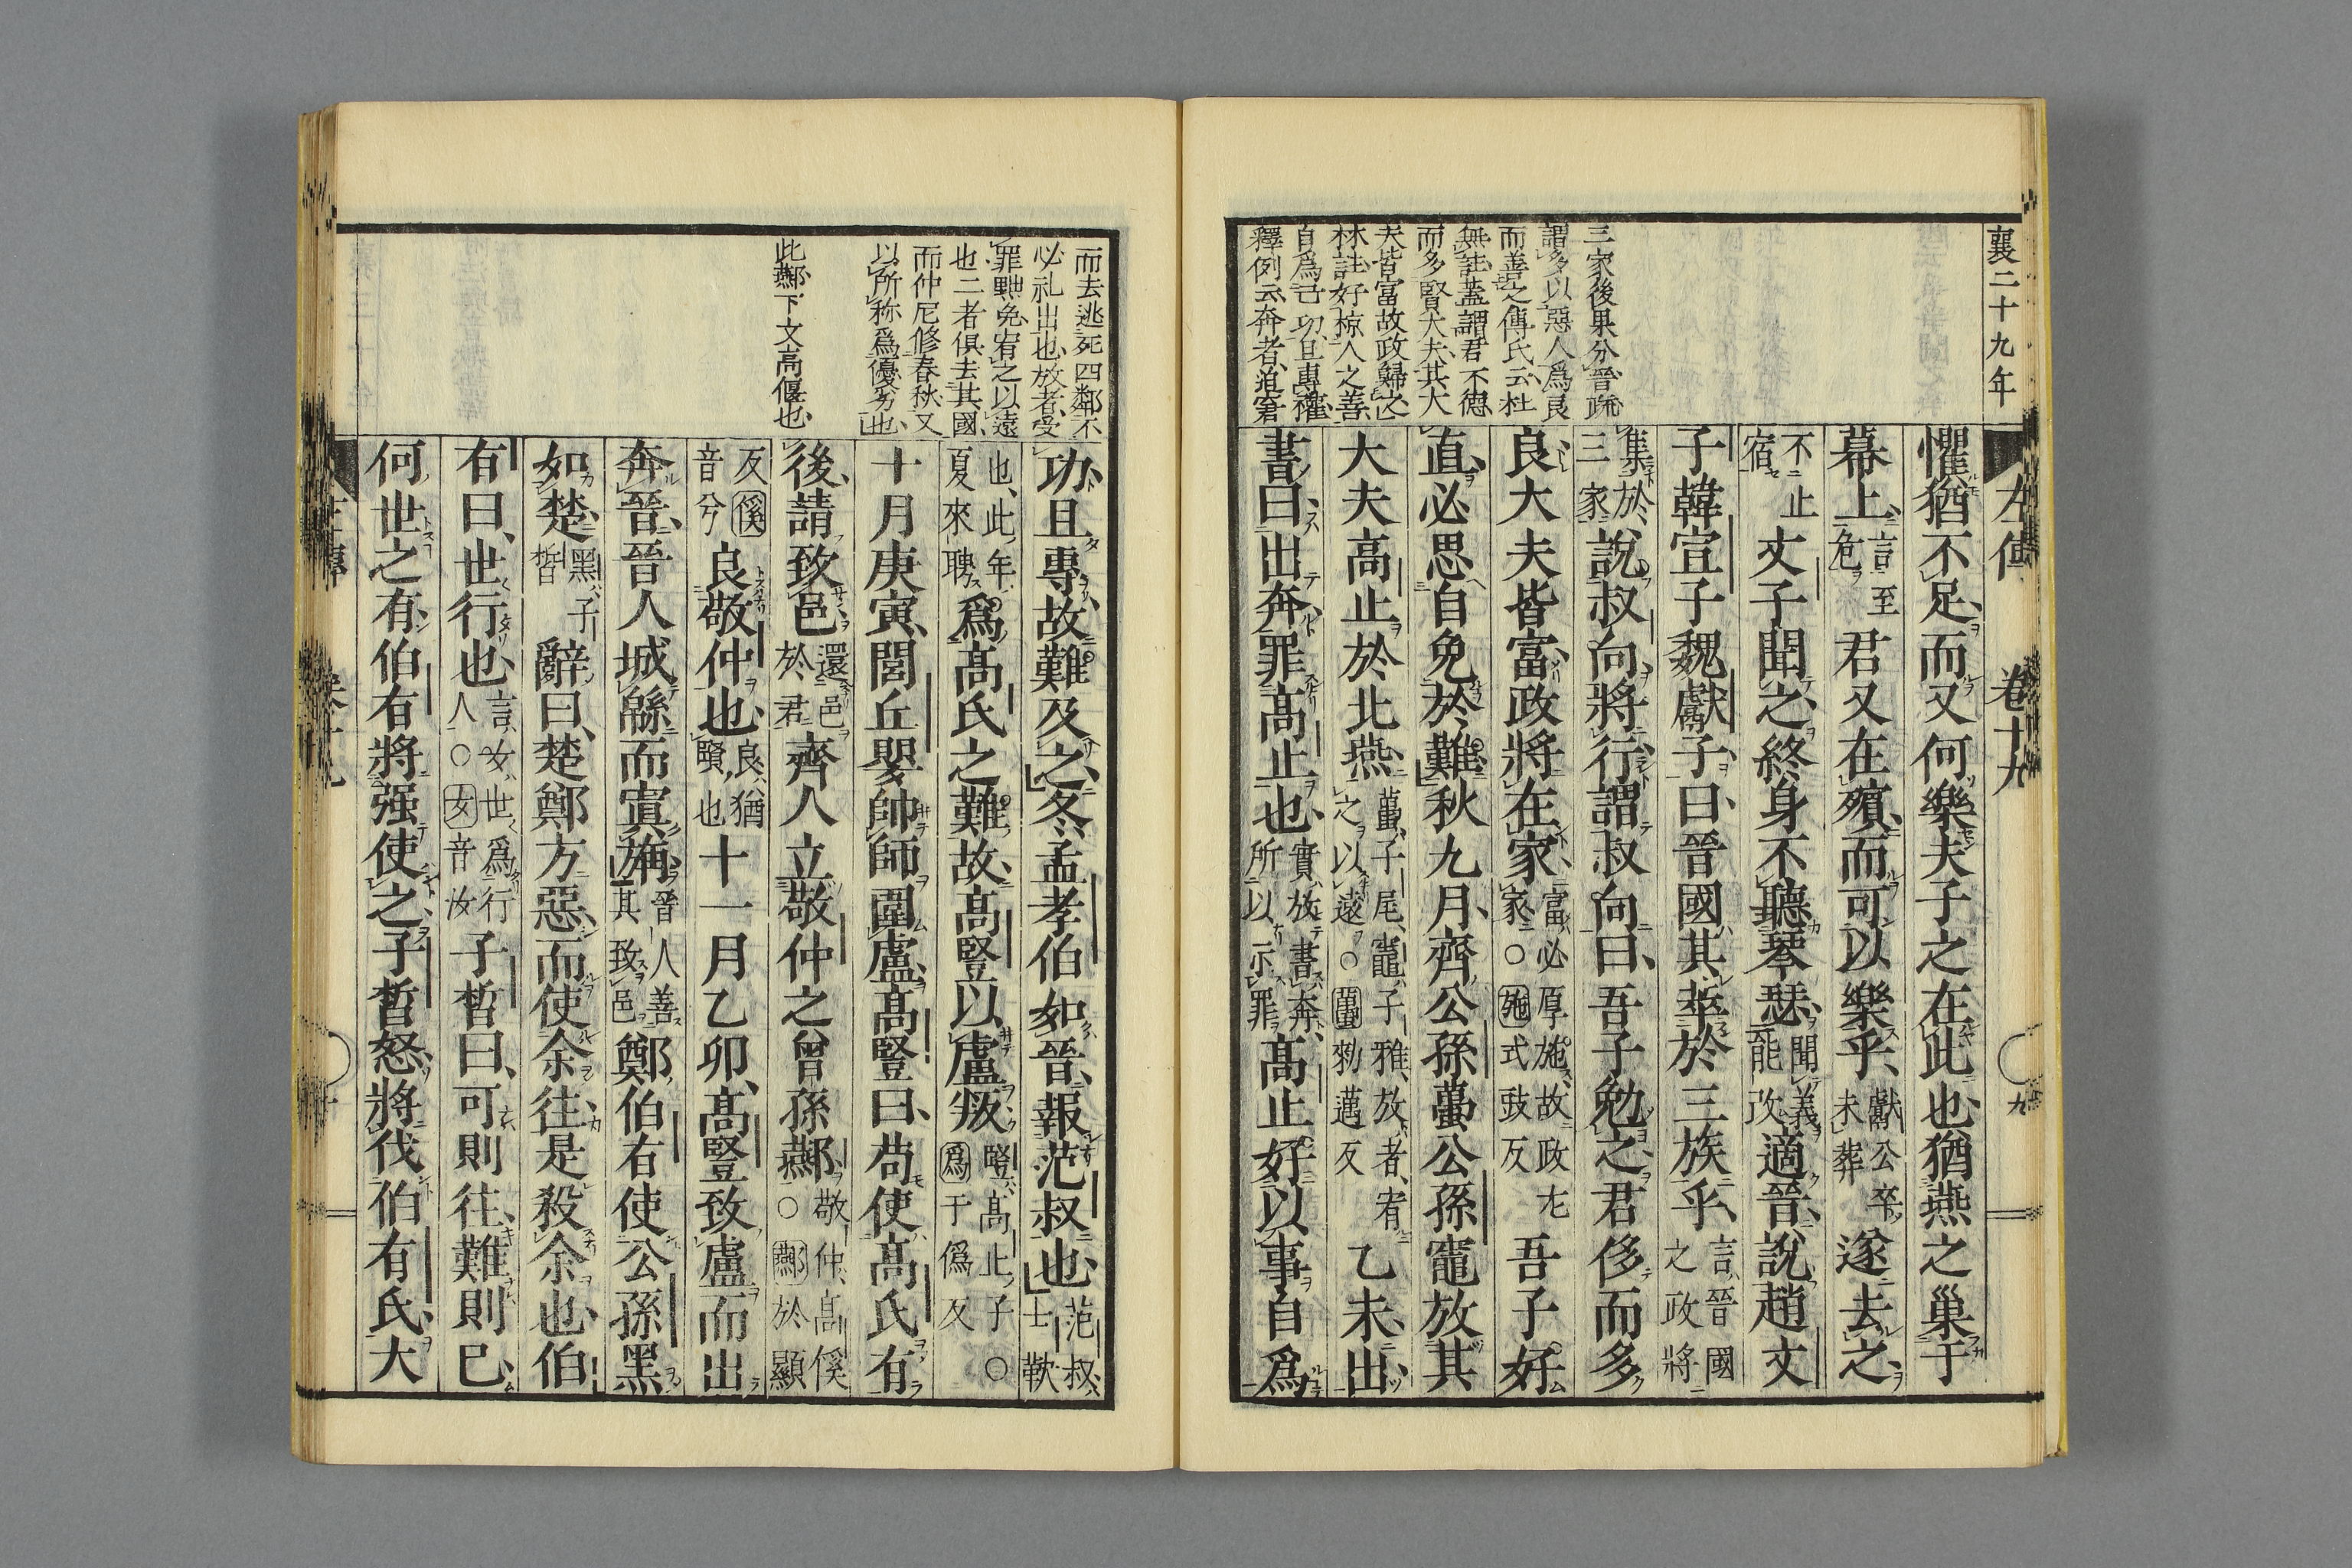 襄二十九年
左傳 卷十九 九
三家後果分晉疏
謂多以惡人爲良
而善之傳氏云杜
無註蓋謂君不德
而多賢大夫其大
夫皆富故政歸之
林註好掠人之善
自爲己功且專權
釋例云奔者迫窘
懼猶不足而又何樂夫子之在此也猶燕之巢于
幕上言至危君又在殯而可以樂乎獻公卒未葬遂去之
不止宿文子聞之終身不聽琴瑟聞義能改適晉說趙文
子韓宣子魏獻子曰晉國其萃於三族乎言晉國之政將
集於三家說叔向將行謂叔向曰吾子勉之君侈而多
良大夫皆富政將在家富必厚施故政在家○施式豉反吾子好
直必思自免於難秋九月齊公孫蠆公孫竈放其
大夫高止於北燕蠆子尾竈子雅放者宥之以遠○蠆勑邁反乙未出
書曰出奔罪高止也實放書奔所以示罪高止好以事自爲
而去逃死四鄰不
必礼出也放者受
罪黜免宥之以遠
也二者俱去其國
而仲尼修春秋又
以所称爲優劣也
此酀下文高偃也
功且專故難及之冬孟孝伯如晉報范叔也范叔士鞅
也此年夏來聘爲高氏之難故高豎以盧叛豎高止子○爲于僞反
十月庚寅閭丘嬰帥師圍盧高豎曰苟使高氏有
後請致邑還邑於君齊人立敬仲之曾孫酀敬仲高傒○酀於顯
反傒音兮良敬仲也良猶賢也十一月乙卯高豎致盧而出
奔晉晉人城緜而寘旃晉人善其致邑鄭伯有使公孫黑
如楚黑子晳辭曰楚鄭方惡而使余往是殺余也伯
有曰世行也言女世爲行人○女音汝子晳曰可則往難則已
何世之有伯有將强使之子晳怒將伐伯有氏大